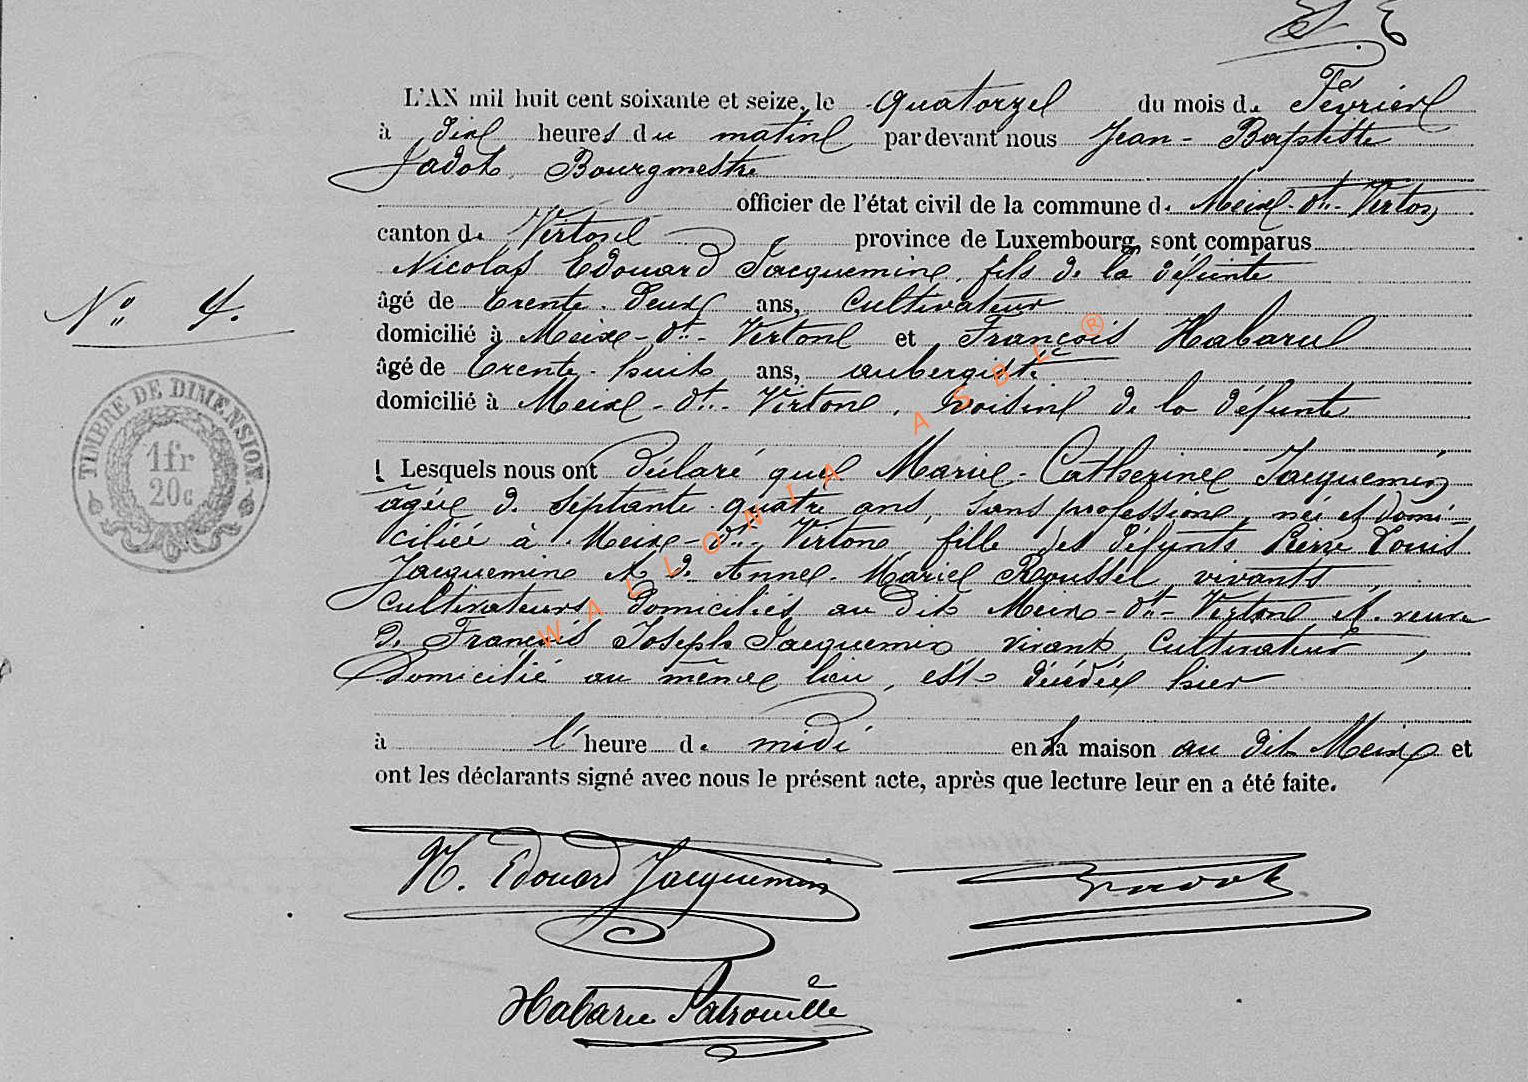 L'AN mil huit cent soixante et seize, le quatorze du mois de Février
à dix heures du matin pardevant nous Jean-Baptiste
Jadot, Bourgmestre
officier de l'état civil de la commune de Meix-dt-Virton,
canton de Virton province de Luxembourg, sont comparus
Nicolas Edouard Jacquemin, fils de la défunte
No 4.
âgé de trente-deux ans, cultivateur
domicilié à Meix-dt-Virton et François Habaru
âgé de trente-huit ans, aubergiste
domicilié à Meix-dt-Virton, voisin de la défunte
Lesquels nous ont déclaré que Marie-Catherine Jacquemin,
agée de septante quatre ans, sans profession, née et domi-
ciliée à Meix-dt-Virton, fille des défunts Pierre Louis
Jacquemin et de Anne-Marie Roussel, vivants,
cultivateurs, domiciliés au dit Meix-dt-Virton, et veuve
de François Joseph Jacquemin vivant, cultivateur,
domicilié au même lieu, est décédée hier
à l'heure de midi en sa maison au dit Meix, et
ont les déclarants signé avec nous le présent acte, après que lecture leur en a été faite.
TIMBRE DE DIMENSION
1fr
20c
WALLONIA ASBL ®
N. Edouard Jacquemin
Jadot
Habaru Patrouille